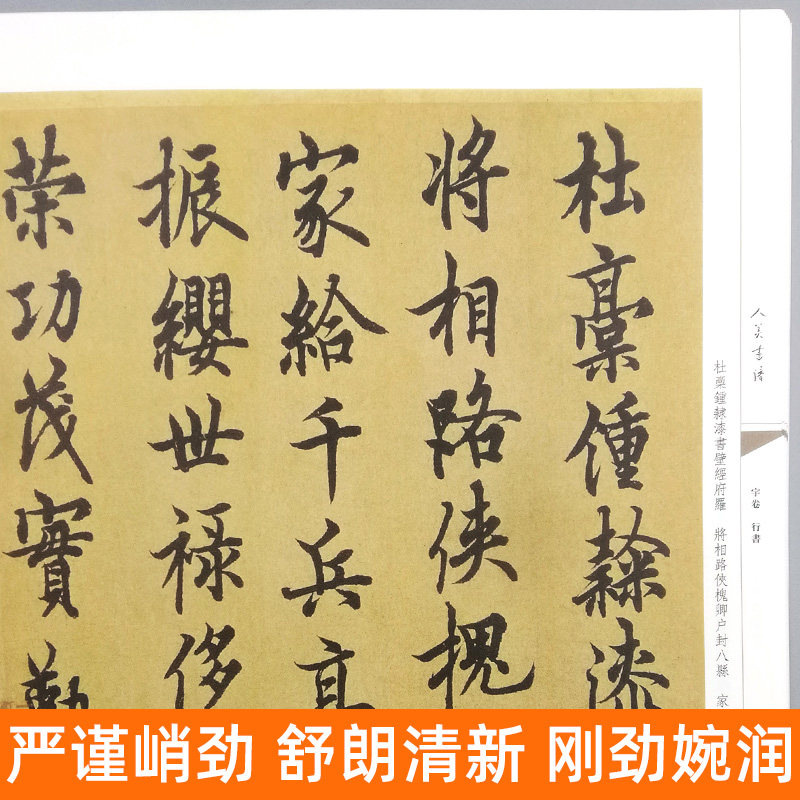 杜稾鍾隸漆
将相路俠槐
家給千兵高
振纓世禄侈
荣功茂實勒
人美書譜
宇卷 行書
杜稾鍾隸漆書壁經府羅 將相路俠槐卿户封八縣 家
严谨峭劲 舒朗清新 刚劲婉润